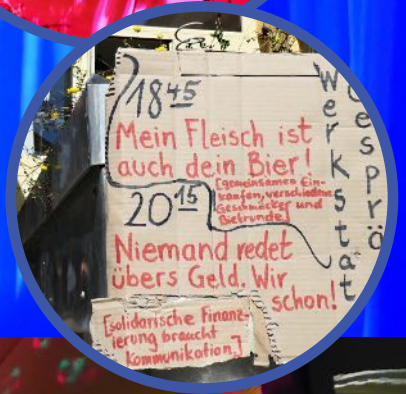 18 45
Mein Fleisch ist
auch dein Bier!
[gemeinsamen Ein-
kaufen, verschiedene
Geschmäcker und
Bietrunde]
20 15
Niemand redet
übers Geld. Wir
schon!
[solidarische Finanz-
ierung braucht
Kommunikation.]
Werkstat
Gesprä